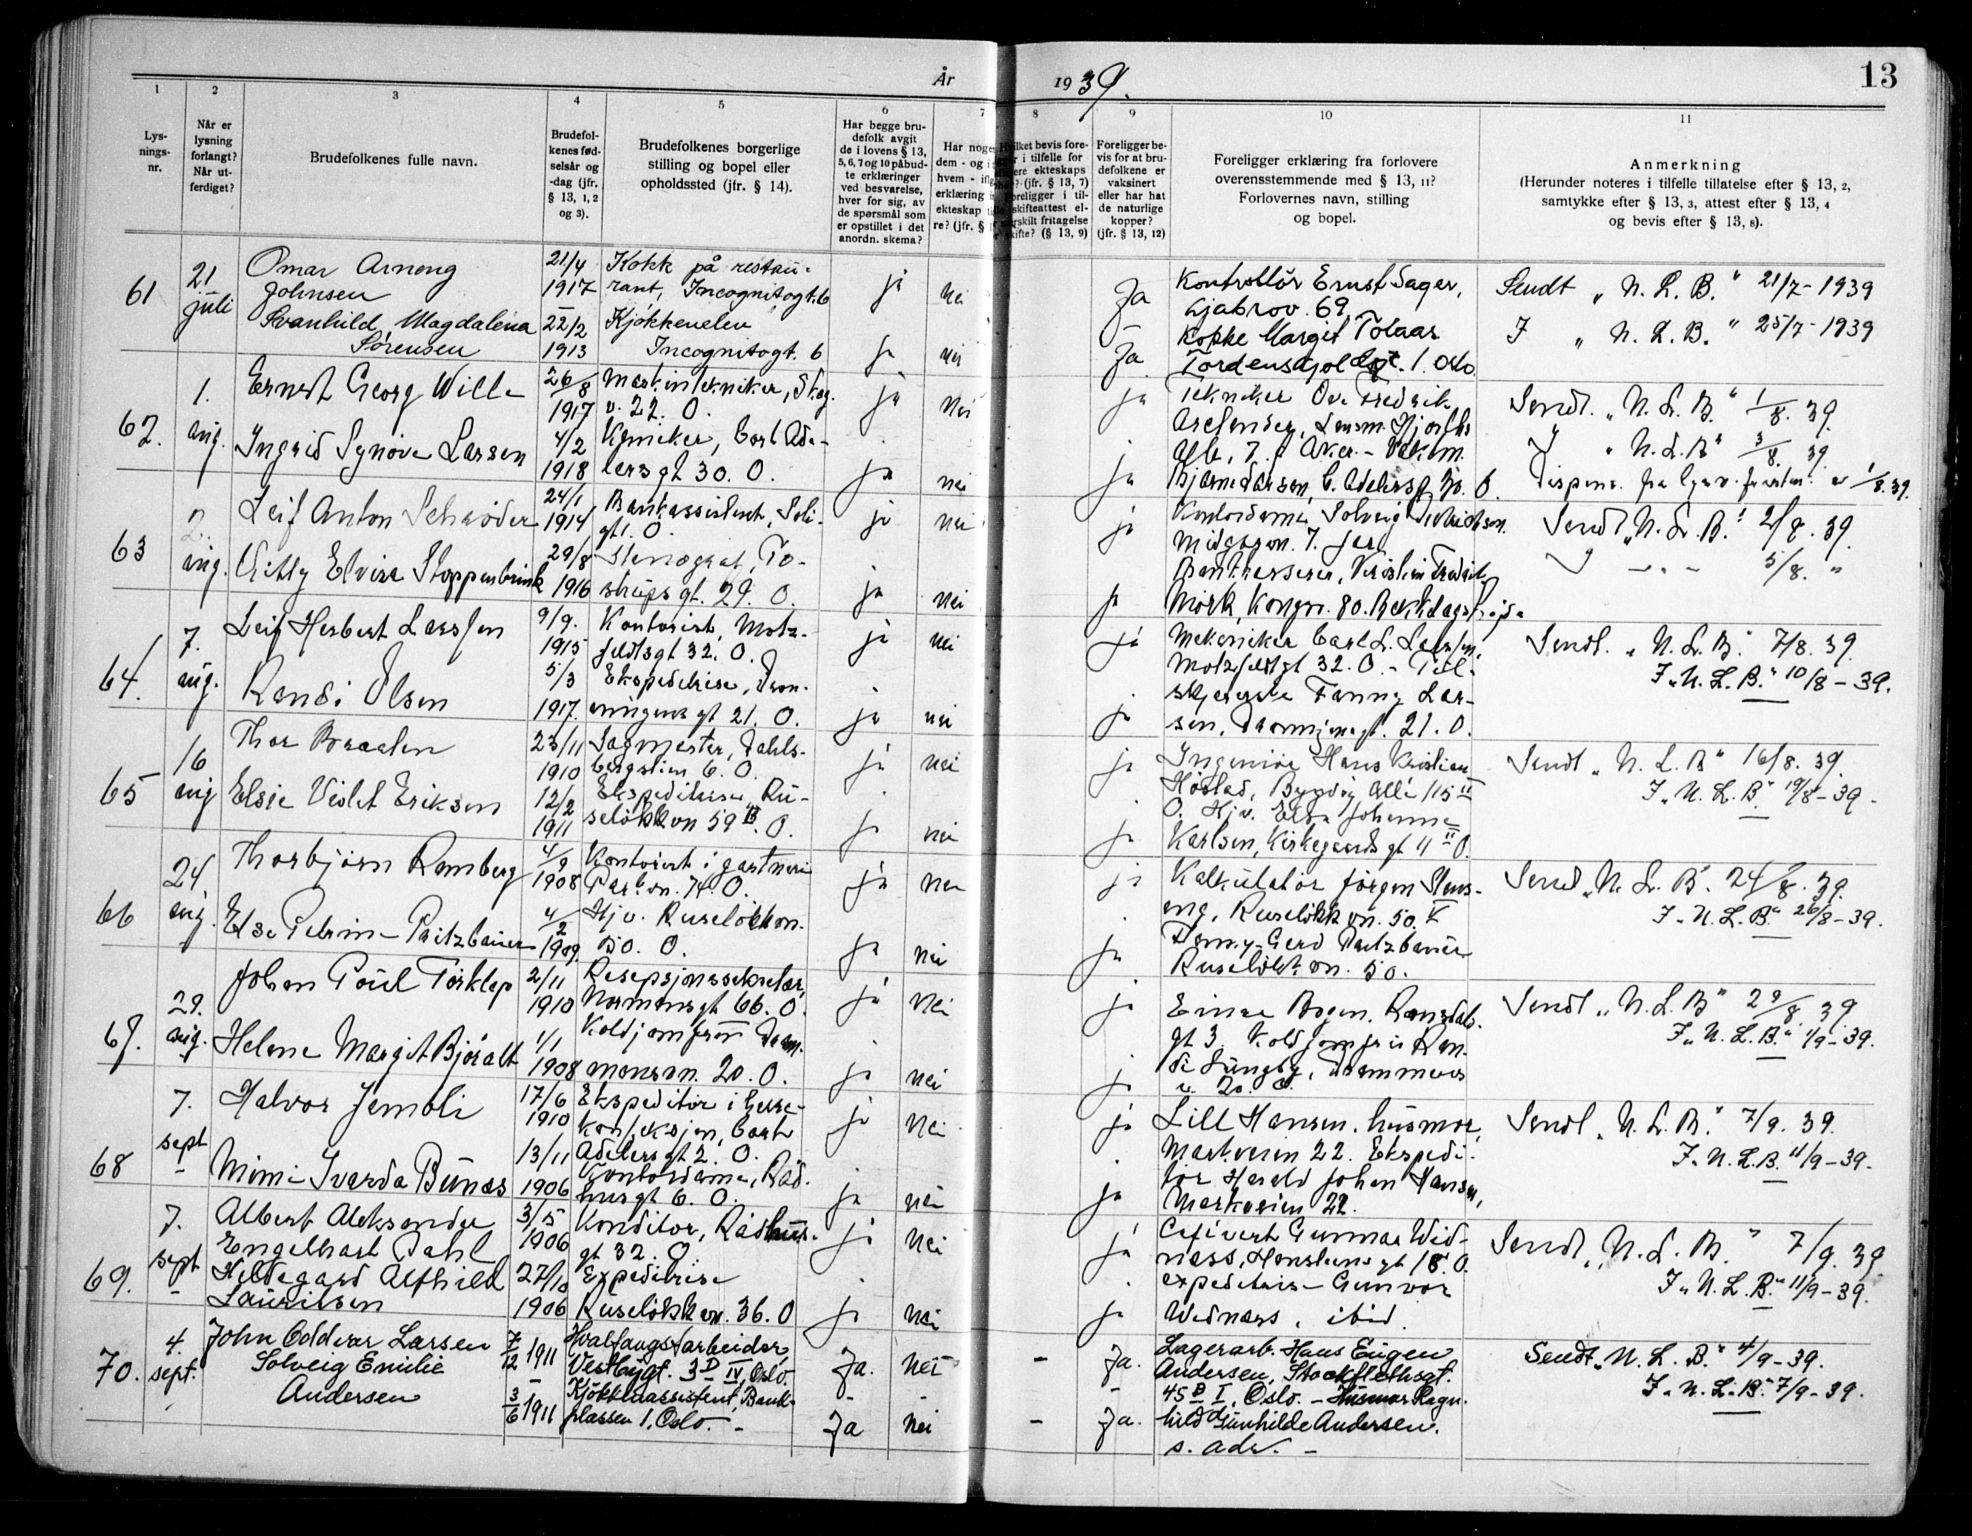 År 1939.
13
1 2 3 4 5 6 7 8 9 10 11
Lys-
nings-
nr.
Når er
lysning
forlangt?
Når ut-
ferdiget?
Brudefolkenes fulle navn.
Brudefol-
kenes fød-
selsår og
-dag (jfr.
§ 13, 1, 2
og 3).
Brudefolkenes borgerlige
stilling og bopel eller
opholdssted (jfr. § 14).
Har begge bru-
defolk avgit
de i lovens § 13,
5, 6, 7 og 10 påbud-
te erklæringer
ved besvarelse,
hver for sig, av
de spørsmål som
er opstillet i det
anordn. skema?
Har noge
dem - og i
hvem - ifl
erklæring
ekteskap
re? (jfr. §
ket bevis fore-
i tilfelle for
ere ekteskaps
? (jfr. § 13, 7)
oreligger i til-
skifteattest el-
rskilt fritagelse
skifte? (§ 13, 9)
Foreligger be-
vis for at bru-
defolkene er
vaksinert
eller har hat
de naturlige
kopper?
(jfr. § 13, 12)
Foreligger erklæring fra forlovere
overensstemmende med § 13, 11?
Forlovernes navn, stilling
og bopel.
Anmerkning
(Herunder noteres i tilfelle tillatelse efter § 13, 2,
samtykke efter § 13, 3, attest efter § 13, 4
og bevis efter § 13, 8).
61
21
juli
Omar Arneng
Johnsen
Svanhild Magdalena
Sørensen
21/4
1917
22/2
1913
Kokk på restau-
rant, Incognitogt. 6
Kjøkkenelev
Incognitogt. 6
ja nei
ja nei
Ja
Ja
Kontrollør Ernst Sager,
Ljabrov. 69.
Kokke Margit Tolaas
Tordenskjoldsgt. 1. Oslo
Sendt „N. L. B." 21/7-1939
I „N. L. B." 25/7-1939
62.
1.
aug.
Ernst Georg Wille
Ingrid Synøve Larsen
26/8
1917
4/2
1918
Maskintekniker, Skog.
v. 22. O.
Kemiker, Carl Ade-
lersgt 30. O.
ja nei
ja nei
ja
ja
Tekniker Ove Fredrik
Bjarne Larsen, C. Adelersgt 30. O.
Sendt. „N. L. B." 1/8. 39.
I „N. L. B" 3/8. 39.
1/8. 39.
63
2.
aug.
Leif Anton Schrøder
Elvira Stoppenbrink
24/1
1914
29/8
1916
Bankassistent,
gt 1. O.
Stenograf, To-
strupsgt. 29. O.
ja nei
ja nei
ja
ja
Kontordame Solveig
7. Jar
Bankkasserer, Kristian Fredrik
Mørk, Kongsv. 80. Bekkelagshøgda
Sendt „N. L. B." 2/8. 39.
I — " — 5/8. "
64.
7.
aug.
Leif Herbert Larsen
Randi Olsen
9/9.
1915
5/3
1917.
Kontorist, Motz-
feldtsgt 32. O.
Ekspeditrise, Dron-
ningens gt 21. O.
ja nei
ja nei
ja
ja
Mekaniker Carl L. Larsen,
Motzfeldtsgt 32. O. -
Fanny Lar-
sen, Dronningensgt. 21. O.
Sendt. „N. L. B." 7/8. 39.
I „N. L. B." 10/8 - 39.
65
16
aug
Thor Braaten
Elsie Violet Eriksen
23/11
1910
12/2
1911
Sagmester, Dahls-
bergstien 6. O.
Ekspeditrise, Ru-
seløkkvn 59 B. O.
ja nei
ja nei
ja
ja
Ingeniør Hans Kristian
Høstad, Bygdøy Allé 115 II
O. Hjv. Johanne
Karlsen, Kirkegaardsgt 11 II O.
Sendt „N. L. B" 16/8. 39.
I „N. L. B." 19/8 - 39.
66
24
aug.
Thorbjørn Ramberg
Else Petrine Pritzbauer
4/9
1908
4/2
1909.
Kontorist i gartneri
Parkvn. 74 O.
Hjv. Ruseløkkvn.
50. O.
ja nei
ja nei
ja
ja
Kalkulatør Jørgen Stens-
eng, Ruseløkkvn. 50. V
Gerd Pritzbauer
Ruseløkkvn. 50.
Sendt „N. L. B". 24/8. 39.
I „N. L. B." 26/8 - 39.
67.
29.
aug.
Johan Poul Tørklep
Helene Margit Bjøralt
2/11
1910
1/1
1908
Resepsjonssekretær,
Normannsgt 66. O.
Koldjomfru Dram-
mensvn. 20. O.
ja nei
ja nei
ja
ja
Einar Bogen, Romsdals-
gt 3. Koldjomfru Ran-
di Lungby, Drammens
v. 20. O.
Sendt „N. L. B" 29/8 39
I „N. L. B." 1/9 - 39.
68
7.
sept
Halvor Jemtli
Mimi Ivarda Bunæs
17/6
1910
13/11
1906
Ekspeditør i herre-
konfeksjon, Carl
Adelersgt 2. O.
Kontordame, Råd-
husgt 6. O.
ja nei
ja nei
ja
ja
Lill Hansen, husmor,
Markveien 22. Ekspedi-
tør Harald Johan Hansen,
Markveien 22.
Sendt „N. L. B." 7/9. 39.
I „N. L. B. 11/9 - 39.
69.
7.
sept
Albert Aleksander
Engelhart Dahl
Hildegard Alfhild
Lauritsen
3/5
1906
27/10
1906
Konditor, Rådhus-
gt 32. O.
Expeditrise
Ruseløkkvn. 36. O
ja nei
ja nei
ja
ja
Gunnar Wid-
næss, Hansteensgt 18. O.
expeditrise Gunvor
Widnæss, ibid.
Sendt „N. L. B." 7/9. 39
I „N. L. B." 11/9 - 39.
70.
4.
sept.
John Oddvar Larsen
Solveig Emilie
Andersen
7/12 1911
3/6 1911
Hvalfangstarbeider,
Vestbygt. 3D IV, Oslo.
Kjøkkenassistent, Bank-
plassen 1, Oslo. -
Ja. nei -
Ja nei -
Ja.
Ja.
Lagerarb. Hans Eugen
Andersen, Stockflethsgt.
45 B I, Oslo. - Husmor Ragn-
hild Gunhilde Andersen.
s. adr. -
Sendt „N. L. B." 4/9 - 39.
I „N. L. B." 7/9 - 39.